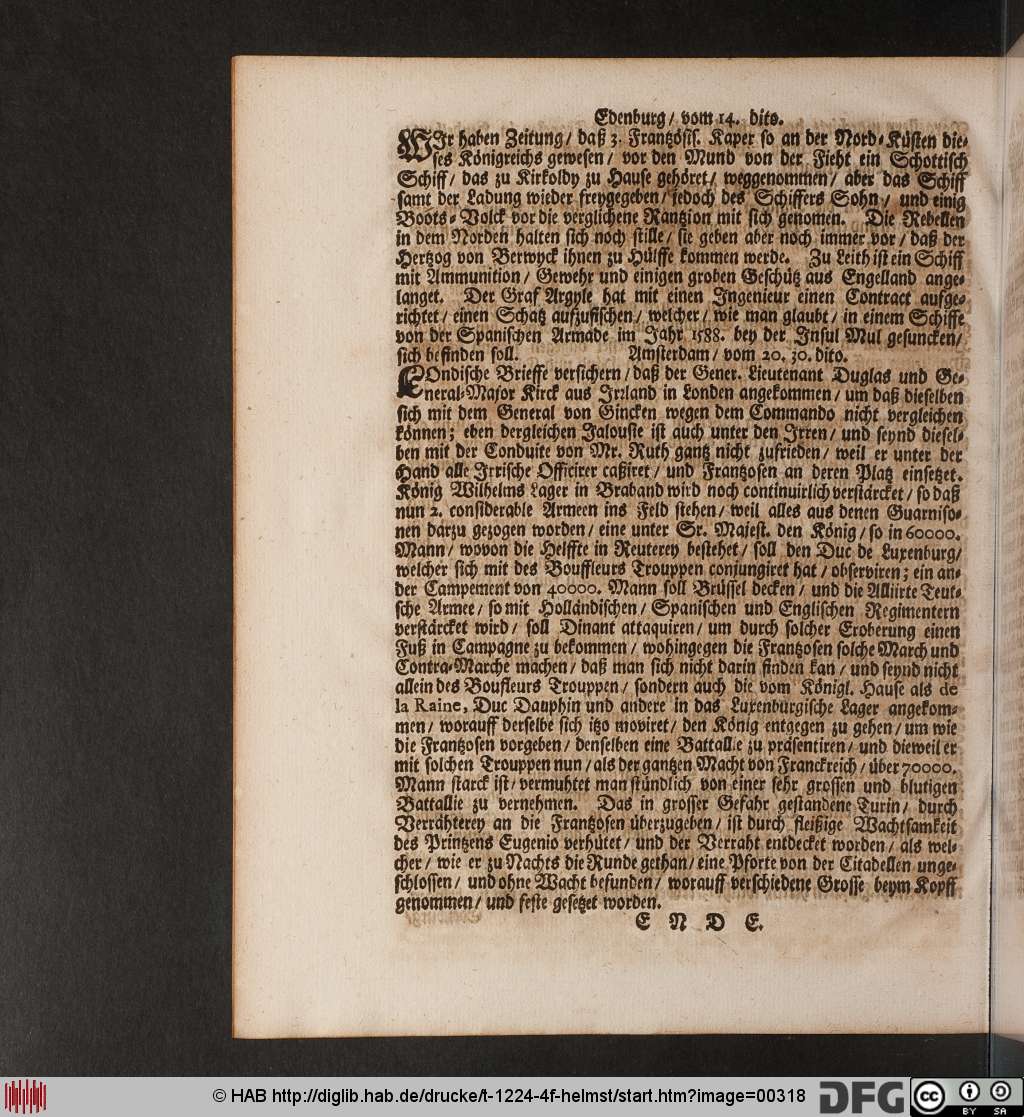 Edenburg/ vom 14. dito.
WIr haben Zeitung/ daß 3. Frantzösis. Kaper so an der Nord-Küsten die-
ses Königreichs gewesen/ vor den Mund von der Fieht ein Schottisch
Schiff/ das zu Kirkoldy zu Hause gehöret/ weggenommen/ aber das Schiff
samt der Ladung wieder freygegeben/ jedoch des Schiffers Sohn/ und einig
Boots-Volck vor die verglichene Rantzion mit sich genomen. Die Rebellen
in dem Norden halten sich noch stille/ sie geben aber noch immer vor/ daß der
Hertzog von Berwyck ihnen zu Hülffe kommen werde. Zu Leith ist ein Schiff
mit Ammunition/ Gewehr und einigen groben Geschütz aus Engelland ange-
langet. Der Graf Argyle hat mit einen Ingenieur einen Contract aufge-
richtet/ einen Schatz aufzufischen/ welcher/ wie man glaubt/ in einem Schiffe
von der Spanischen Armade im Jahr 1588. bey der Insul Mul gesuncken/
sich befinden soll. Amsterdam/ vom 20. 30. dito.
LOndische Brieffe versichern/ daß der Gener. Lieutenant Duglas und Ge-
neral-Major Kirck aus Irrland in Londen angekommen/ um daß dieselben
sich mit dem General von Gincken wegen dem Commando nicht vergleichen
können; eben dergleichen Jalousie ist auch unter den Irren/ und seynd diesel-
ben mit der Conduite von Mr. Ruth gantz nicht zufrieden/ weil er unter der
Hand alle Irrische Officirer caßiret/ und Frantzosen an deren Platz einsetzet.
König Wilhelms Lager in Braband wird noch continuirlich verstärcket/ so daß
nun 2. considerable Armeen ins Feld stehen/ weil alles aus denen Guarniso-
nen darzu gezogen worden/ eine unter Sr. Majest. den König/ so in 60000.
Mann/ wovon die Helffte in Reuterey bestehet/ soll den Duc de Luxenburg/
welcher sich mit des Bouffleurs Trouppen conjungiret hat/ observiren; ein an-
der Campement von 40000. Mann soll Brüssel decken/ und die Alliirte Teut-
sche Armee/ so mit Holländischen/ Spanischen und Englischen Regimentern
verstärcket wird/ soll Dinant attaquiren/ um durch solcher Eroberung einen
Fuß in Campagne zu bekommen/ wohingegen die Frantzosen solche March und
Contra-Marche machen/ daß man sich nicht darin finden kan/ und seynd nicht
allein des Boufleurs Trouppen/ sondern auch die vom Königl. Hause als de
la Raine, Duc Dauphin und andere in das Luxenburgische Lager angekom-
men/ worauff derselbe sich itzo moviret/ den König entgegen zu gehen/ um wie
die Frantzosen vorgeben/ denselben eine Battallie zu präsentiren/ und dieweil er
mit solchen Trouppen nun/ als der gantzen Macht von Franckreich/ über 70000.
Mann starck ist/ vermuhtet man stündlich von einer sehr grossen und blutigen
Battallie zu vernehmen. Das in grosser Gefahr gestandene Turin/ durch
Verrähterey an die Frantzosen überzugeben/ ist durch fleißige Wachtsamkeit
des Printzens Eugenio verhütet/ und der Verraht entdecket worden/ als wel-
cher/ wie er zu Nachts die Runde gethan/ eine Pforte von der Citadellen unge-
schlossen/ und ohne Wacht befunden/ worauff verschiedene Grosse beym Kopff
genommen/ und feste gesetzet worden.
E N D E.
© HAB http://diglib.hab.de/drucke/t-1224-4f-helmst/start.htm?image=00318
DFG
cc BY SA